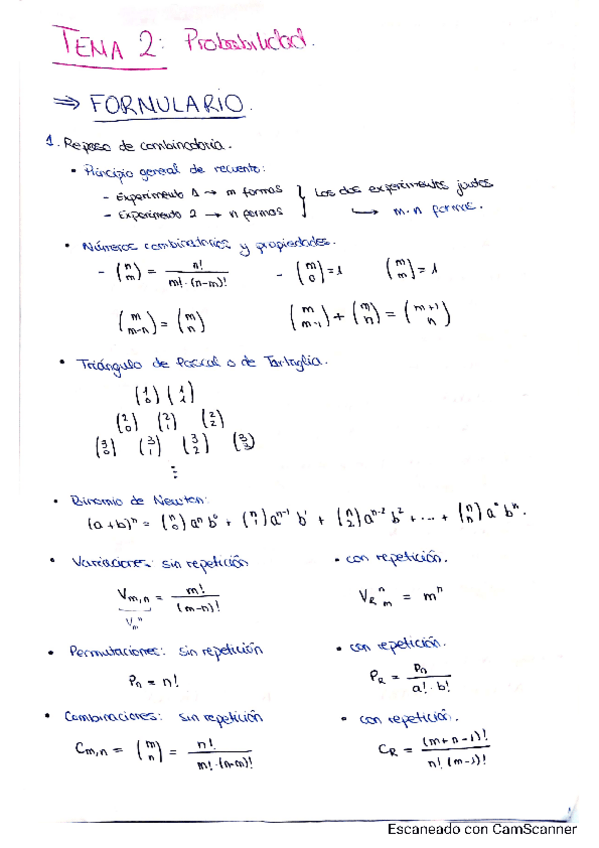 TEMA 2: Probabilidad.
⇒ FORMULARIO.
1. Repaso de combinatoria.
• Principio general de recuento:
- Experimento 1 → m formas } Los dos experimentos juntos
- Experimento 2 → n formas ↳ m·n formas.
• Números combinatorios y propiedades.
- (n m) = n! / m!·(n-m)! - (m 0) = 1 (m m) = 1
(m m-n) = (m n) (m m-1) + (m n) = (m+1 n)
• Triángulo de Pascal o de Tartaglia.
(1 0) (1 1)
(2 0) (2 1) (2 2)
(3 0) (3 1) (3 2) (3 3)
⋮
• Binomio de Newton:
(a+b)ⁿ = (n 0) aⁿ b⁰ + (n 1) aⁿ⁻¹ b¹ + (n 2) aⁿ⁻² b² + ... + (n n) a⁰ bⁿ.
• Variaciones: sin repetición • con repetición.
Vm,n = m! / (m-n)! VR m n = mⁿ
Vm n
• Permutaciones: sin repetición • con repetición.
Pn = n! PR = Pn / a!·b!
• Combinaciones: sin repetición • con repetición.
Cm,n = (m n) = n! / m!·(n-m)! CR = (m+n-1)! / n!(m-1)!
Escaneado con CamScanner